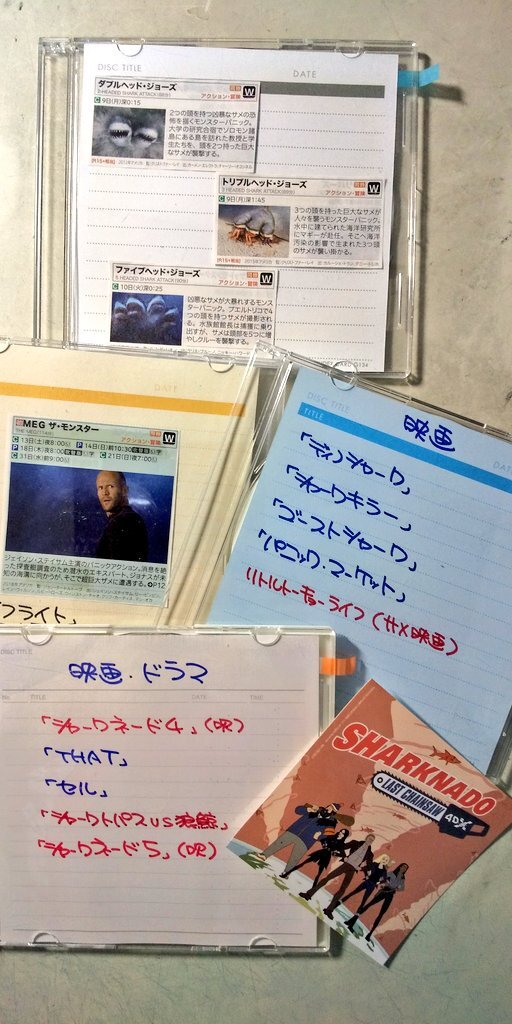 DISC TITLE
DATE
ダブルヘッド・ジョーズ
2-HEADED SHARK ATTACK
アクション・冒険
W
C 9日(月)深0:15
2つの頭を持つ凶暴なサメの恐
怖を描くモンスターパニック。
大学の研究合宿でソロモン諸
島にある島を訪れた教授と学
生たちを、頭を2つ持った巨大
なサメが襲撃する。
トリプルヘッド・ジョーズ
3-HEADED SHARK ATTACK
アクション・冒険
W
C 9日(月)深1:45
3つの頭を持った巨大なサメが
人々を襲うモンスターパニック。
水中に建てられた海洋研究所
にマギーが赴任。そこへ海洋
汚染の影響で生まれた3つ頭
のサメが襲い掛かる。
ファイブヘッド・ジョーズ
5-HEADED SHARK ATTACK
アクション・冒険
W
C 10日(火)深0:25
凶悪なサメが大暴れするモンス
ターパニック。プエルトリコで4
つの頭を持つサメが撮影され
る。水族館館長は捕獲に乗り
出すが、サメは頭部を5つに増
やしクルーを襲撃する。
DATE
MEG ザ・モンスター
THE MEG
アクション・冒険
W
C 13日(土)夜8:00 P 14日(日)前10:30
P 18日(木)夜8:00 C 21日(日)夜7:00
C 31日(水)前9:00
ジェイソン・ステイサム主演のパニックアクション。消息を絶
った探査艇調査のため潜水のエキスパート、ジョナスが未
知の海溝に向かうが、そこで超巨大ザメに遭遇する。P12
フライト」
DISC TITLE
TITLE
DATE
映画
「ディノシャーク」
「シャークキラー」
「ゴーストシャーク」
「パニック・マーケット」
リトルトーキョーライフ(サメ映画)
DISC TITLE
映画・ドラマ
No.
TITLE
DATE
TIME
「シャークネード4」(吹)
「THAT」
「セル」
「シャークトパスVS狼鯨」
「シャークネード5」(吹)
SHARKNADO
LAST CHAINSAW
4DX